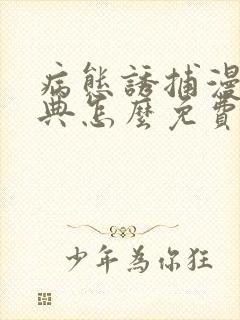 病態誘捕漫
典怎麼免費
少年為你狂